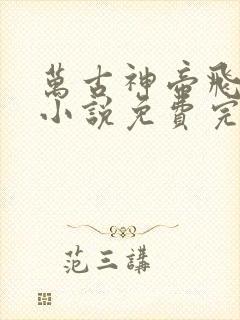 萬古神帝飛
小說免費完
范三講